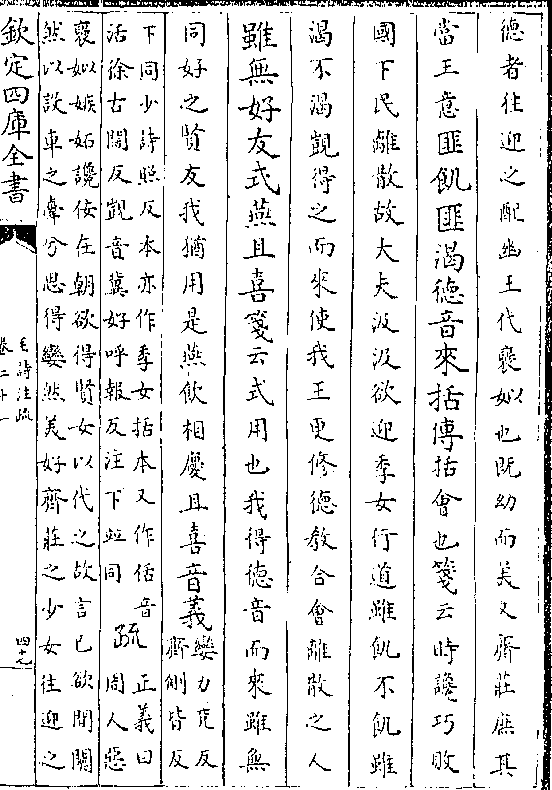 德者往迎之配幽王代襃姒也既幼而美又齊莊庶其
當王意匪飢匪渴德音來括傳括會也箋云時讒巧敗
國下民離散故大夫汲汲欲迎季女行道雖飢不飢雖
渴不渴覬得之而來使我王更修德教合會離散之人
雖無好友式燕且喜箋云式用也我得德音而來雖無
同好之賢友我猶用是燕飲相慶且喜音義孌力兖反齊側皆反
下同少詩照反本亦作季女括本又作佸音
活徐古闊反覬音冀好呼報反注下竝同
疏
正義曰
周人惡
襃姒嫉妬讒佞在朝欲得賢女以代之故言已欲間關
然以設車之舝兮思得孌然美好齊莊之少女往迎之
欽定四庫全書
毛詩注疏
卷二十一
四十九